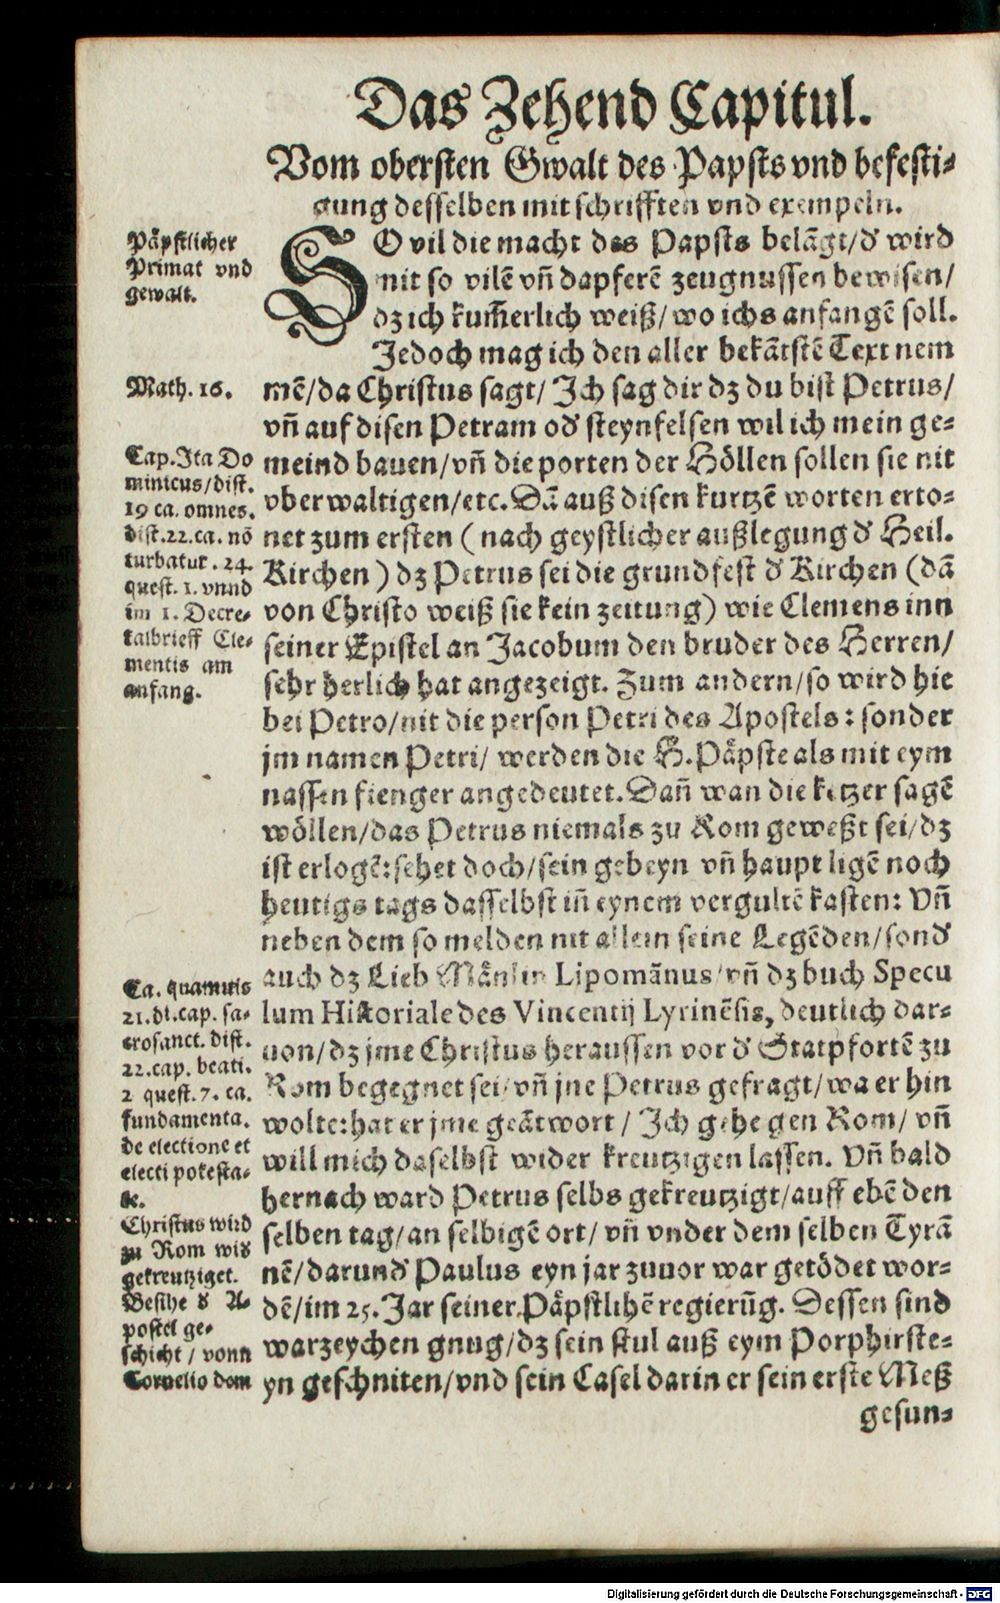 Das Zehend Capitul.
Vom obersten Gwalt des Papsts vnd befesti-
gung desselben mit schrifften vnd exempeln.
Päpstlicher
Primat vnd
gewalt.
SO vil die macht des Papsts belāgt/ď wird
mit so vilē vñ dapferē zeugnussen bewisen/
dz ich kum̃erlich weiß/wo ichs anfangē soll.
Jedoch mag ich den aller bekātstē Text nem
Math. 16.
mē/da Christus sagt/ Ich sag dir dz du bist Petrus/
vñ auf disen Petram oď steynfelsen wil ich mein ge-
meind bauen/vñ die porten der Höllen sollen sie nit
vberwaltigen/etc. Dā auß disen kurtzē worten erto-
net zum ersten ( nach geystlicher außlegung ď Heil.
Kirchen ) dz Petrus sei die grundfest ď Kirchen (dā
von Christo weiß sie kein zeitung) wie Clemens inn
seiner Epistel an Jacobum den bruder des Herren/
sehr herlich hat angezeigt. Zum andern/so wird hie
Cap. Ita Do
minicus/dist.
19 ca. omnes.
dist.22.ca. nō
turbatur . 24.
quest. 1. vnnd
im 1. Decre-
talbrieff Cle-
mentis am
anfang.
bei Petro/nit die person Petri des Apostels: sonder
jm namen Petri/ werden die H. Päpste als mit eym
nassen fienger angedeutet. Dañ wan die ketzer sagē
wöllen/das Petrus niemals zu Rom geweßt sei/dz
ist erlogē: sehet doch/sein gebeyn vñ haupt ligē noch
heutigs tags dasselbst iñ eynem vergultē kasten: Vñ
neben dem so melden nit allein seine Legēden/sonď
auch dz Lieb Mänlin Lipomānus/vñ dz buch Specu
lum Historiale des Vincentij Lyrinēsis, deutlich dar-
uon/dz jme Christus heraussen vor ď Statpfortē zu
Rom begegnet sei/vñ jne Petrus gefragt/wa er hin
wolte: hat er jme geātwort / Ich gehe gen Rom/ vñ
will mich daselbst wider kreutzigen lassen. Vñ bald
hernach ward Petrus selbs gekreutzigt/auff ebē den
Ca. quamuis
21.di.cap. sa-
crosanct. dist.
22.cap. beati.
2 quest.7. ca.
fundamenta.
de electione et
electi potesta-
te.
selben tag/an selbigē ort/ vñ vnder dem selben Tyrā
nē/darunď Paulus eyn jar zuuor war getödet wor-
dē/im 25. Jar seiner Päpstlihē regierūg. Dessen sind
warzeychen gnug/dz sein stul auß eym Porphirste-
yn geschniten/vnd sein Casel darin er sein erste Meß
Christus wird
zu Rom wiď
gekreutziget.
Besihe ď A-
postel ge-
schicht / vonn
Cornelio dem
gesun-
Digitalisierung gefördert durch die Deutsche Forschungsgemeinschaft - DFG